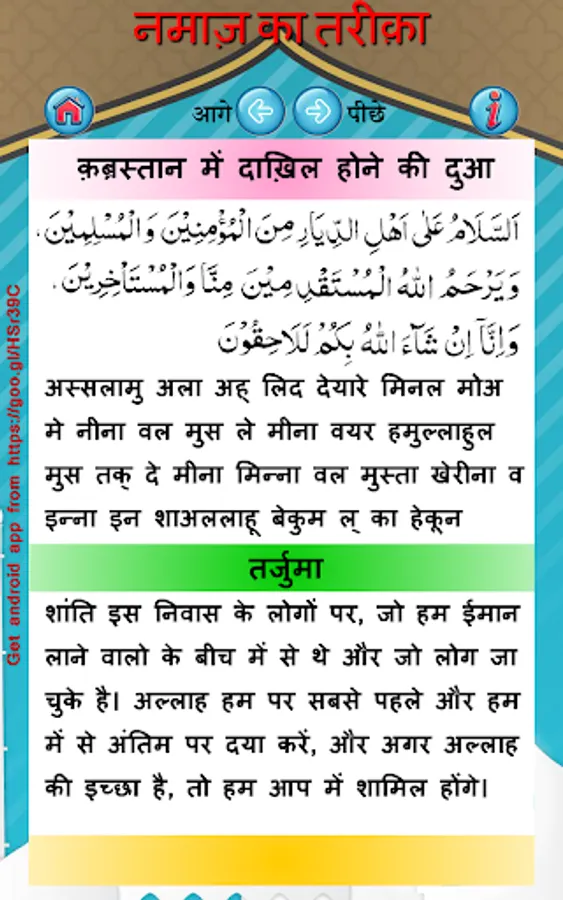 नमाज़ का तरीक़ा
आगे पीछे
क़ब्रस्तान में दाख़िल होने की दुआ
اَلسَّلَامُ عَلٰى اَهْلِ الدِّيَارِ مِنَ الْمُؤْمِنِيْنَ وَالْمُسْلِمِيْنَ،
وَيَرْحَمُ اللهُ الْمُسْتَقْدِمِيْنَ مِنَّا وَالْمُسْتَاْخِرِيْنَ،
وَاِنَّآ اِنْ شَآءَ اللهُ بِكُمْ لَلَاحِقُوْنَ
अस्सलामु अला अह् लिद देयारे मिनल मोअ
मे नीना वल मुस ले मीना वयर हमुल्लाहुल
मुस तक् दे मीना मिन्ना वल मुस्ता खेरीना व
इन्ना इन शाअललाहू बेकुम ल् का हेकून
तर्जुमा
शांति इस निवास के लोगों पर, जो हम ईमान
लाने वालो के बीच में से थे और जो लोग जा
चुके है। अल्लाह हम पर सबसे पहले और हम
में से अंतिम पर दया करें, और अगर अल्लाह
की इच्छा है, तो हम आप में शामिल होंगे।
Get android app from https://goo.gl/HSr39C